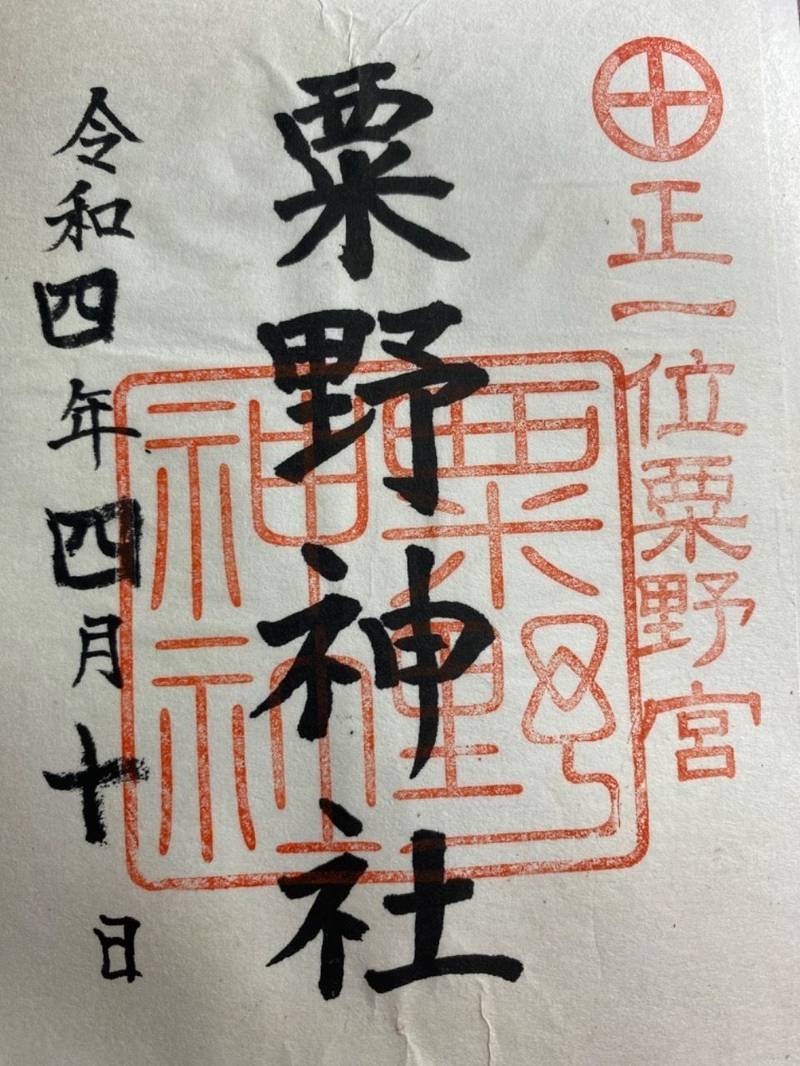 正一位粟野宮
粟野神社
粟野
神社
令和四年四月十日